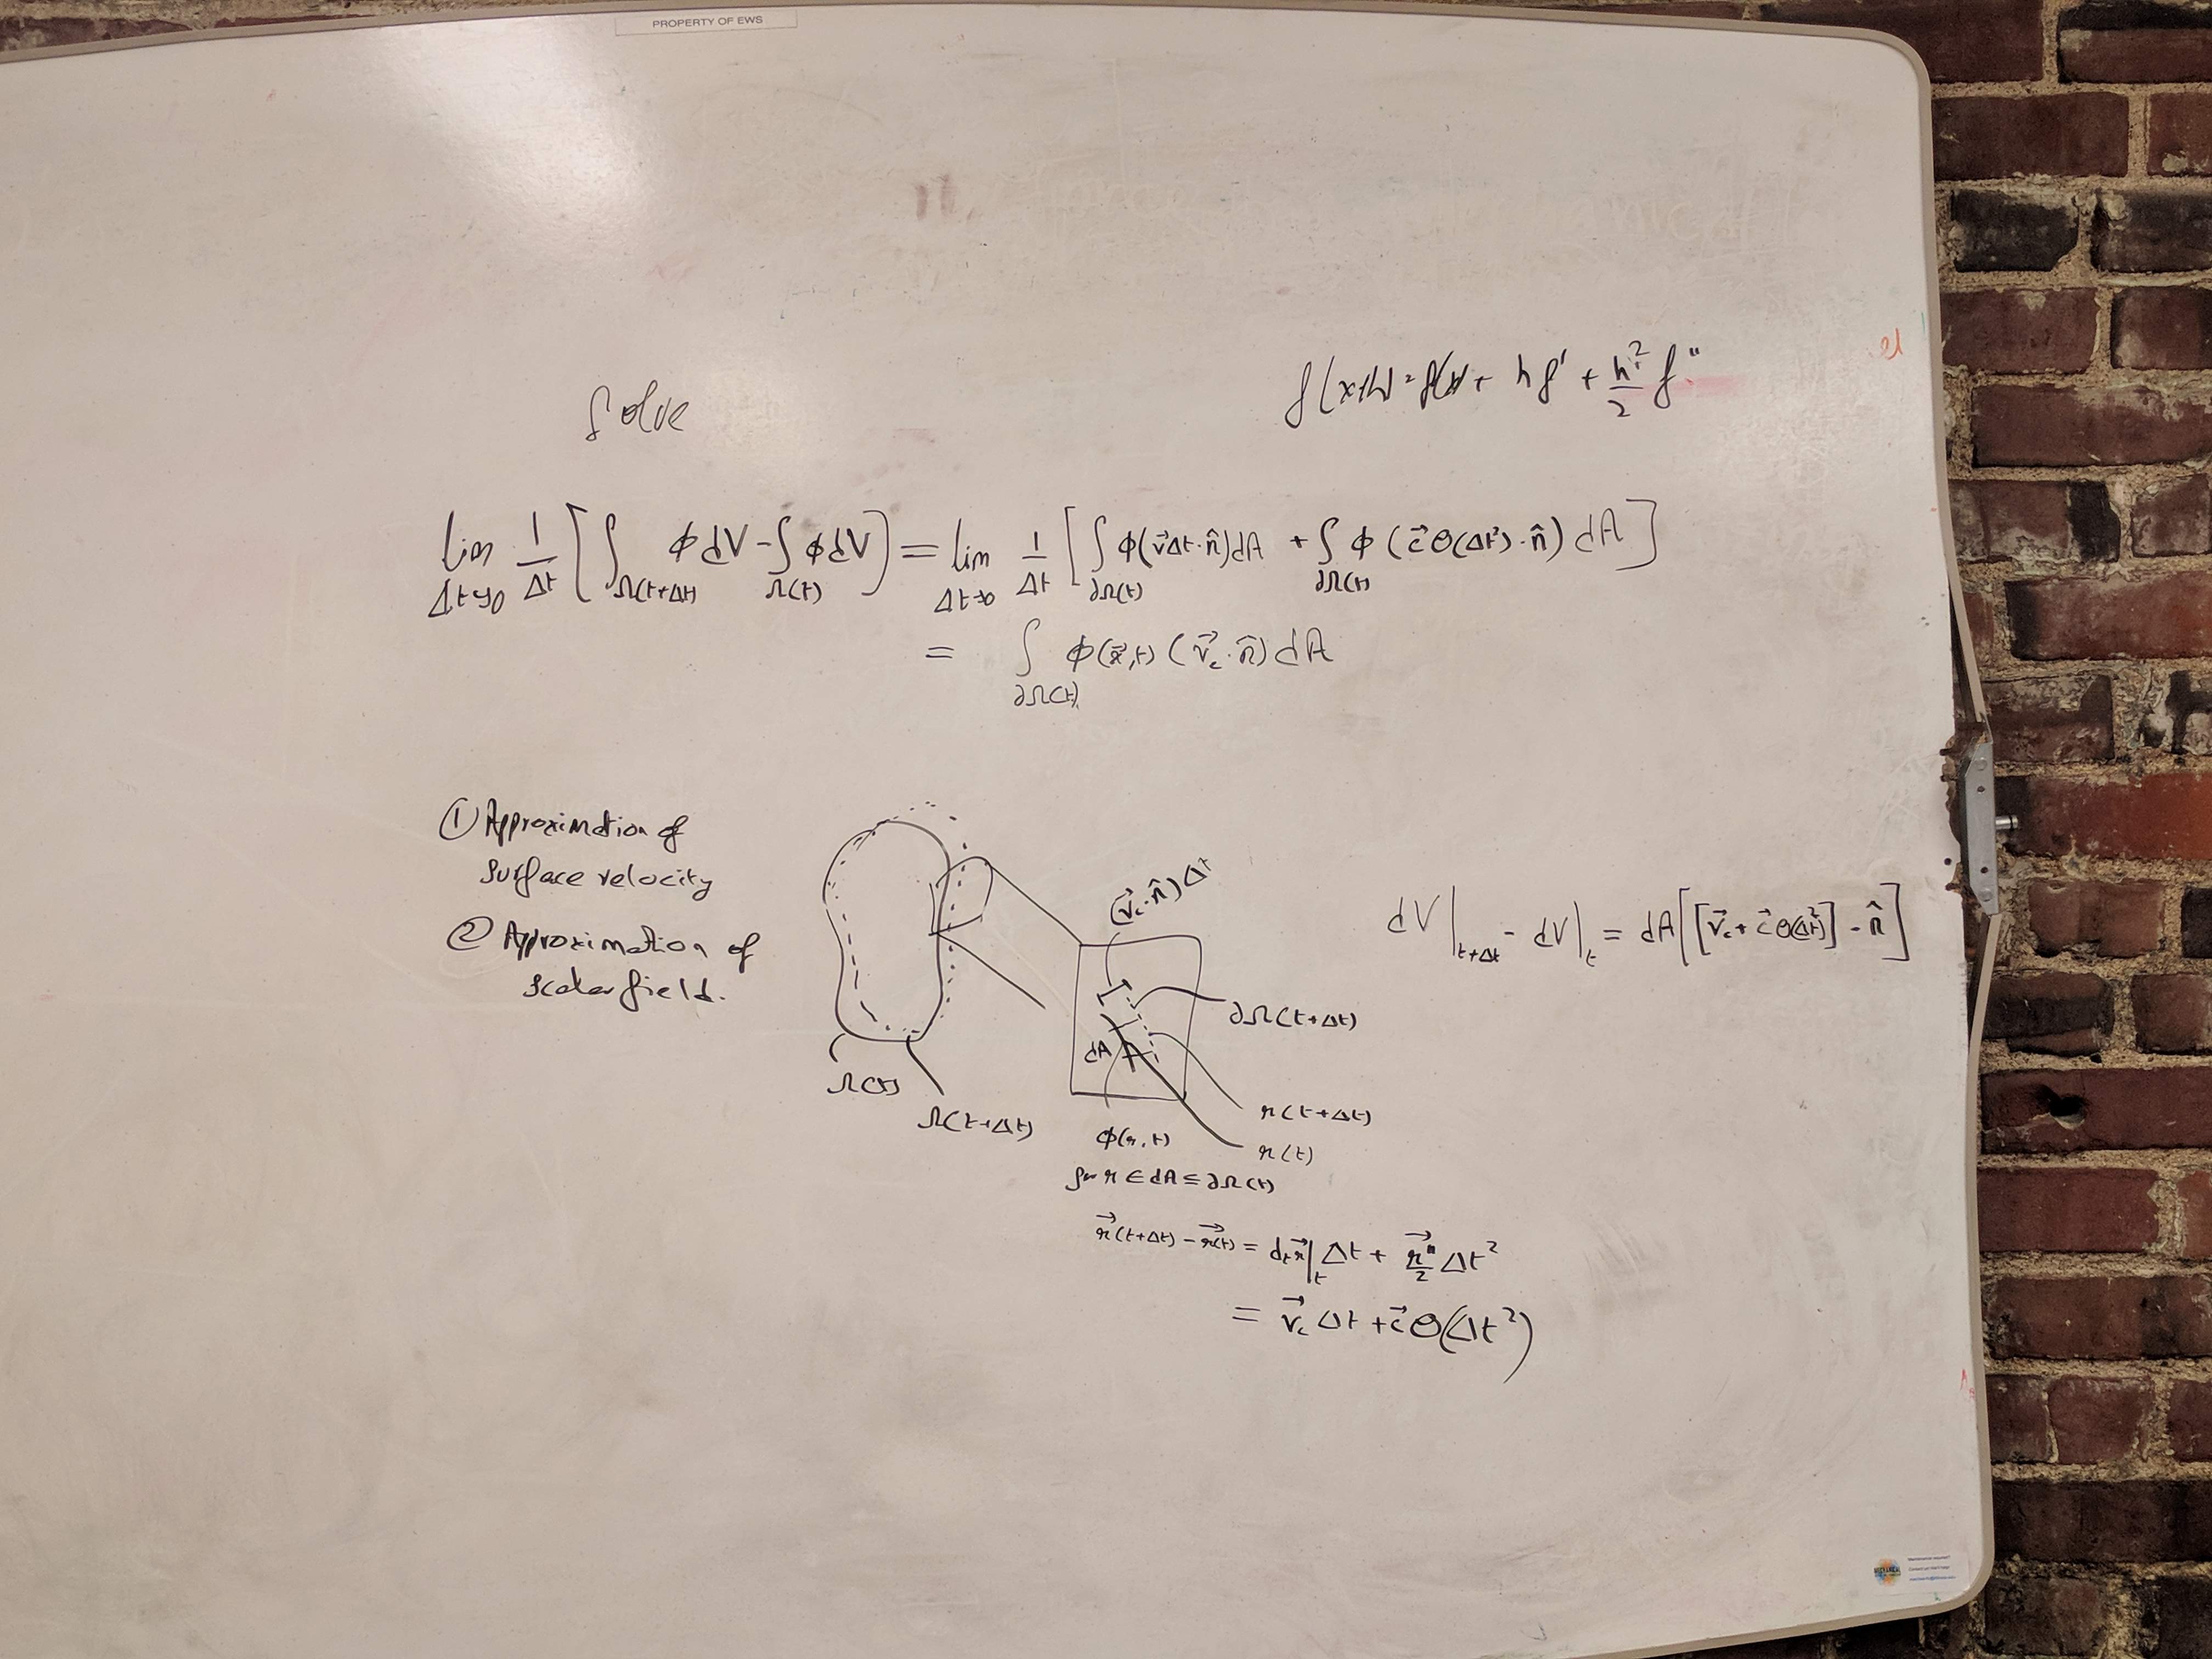 PROPERTY OF EWS
Solve
f(x+h) = f(x) + h f' + h²/2 f"
lim Δt→0 1/Δt [ ∫Ω(t+Δt) ϕ dV - ∫Ω(t) ϕ dV ] = lim Δt→0 1/Δt [ ∫∂Ω(t) ϕ(v⃗Δt·n̂)dA + ∫∂Ω(t) ϕ (c⃗ Θ(Δt²)·n̂) dA ]
= ∫∂Ω(t) ϕ(x⃗,t) (v⃗c·n̂) dA
① Approximation of
surface velocity
② Approximation of
scalar field.
(v⃗c·n̂)Δt
dV|t+Δt - dV|t = dA[[v⃗c + c⃗ Θ(Δt²)]·n̂]
∂Ω(t+Δt)
dA
Ω(t)
Ω(t+Δt)
r(t+Δt)
r(t)
ϕ(r,t)
for r ∈ dA ⊆ ∂Ω(t)
r⃗(t+Δt) - r⃗(t) = dt r⃗|t Δt + r⃗"/2 Δt²
= v⃗c Δt + c⃗ Θ(Δt²)